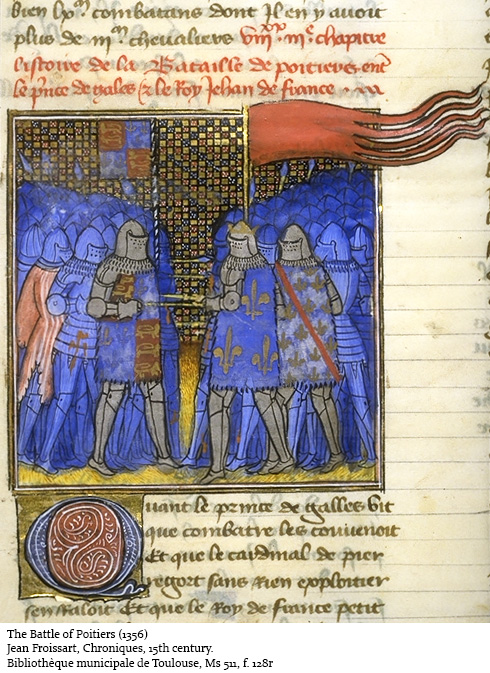 bien lx.m combatans dont Il en y avoit
plus de iii.m chevaliers viii.xx iii.e chapitre
listoire de la Bataille de poitiers ent
le prince de gales & le Roy Jehan de france
Quant le prince de galles vit
que combatre les convenoit
Et que le cardinal de pier
regort sans Rien exploitier
sen Raloit Et que le Roy de france petit
The Battle of Poitiers (1356)
Jean Froissart, Chroniques, 15th century.
Bibliothèque municipale de Toulouse, Ms 511, f. 128r